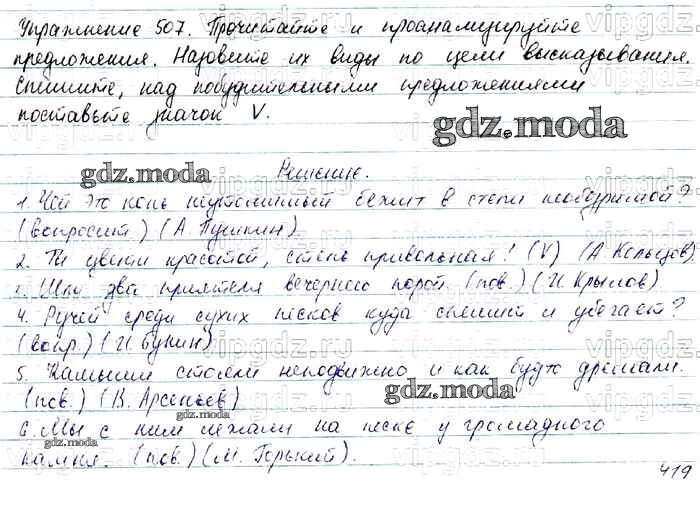 Упражнение 507. Прочитайте и проанализируйте
предложения. Назовите их виды по цели высказывания.
Спишите, над побудительными предложениями
поставьте значок V.
gdz.moda
gdz.moda
Решение.
1. Чей это конь неутомимый бежит в степи необозримой?
(вопросит.) (А. Пушкин)
2. Ты цвети красотой, степь привольная! (V) (А. Кольцов)
3. Шли два приятеля вечернею порой. (пов.) (И. Крылов).
4. Ручей среди сухих песков куда спешит и убегает?
(вопр.) (И Бунин)
5. Камыши стояли неподвижно и как будто дремали.
(пов.) (В. Арсеньев)
gdz.moda
gdz.moda
6. Мы с ним лежали на песке у громадного
камня. (пов.) (М. Горький).
gdz.moda
419